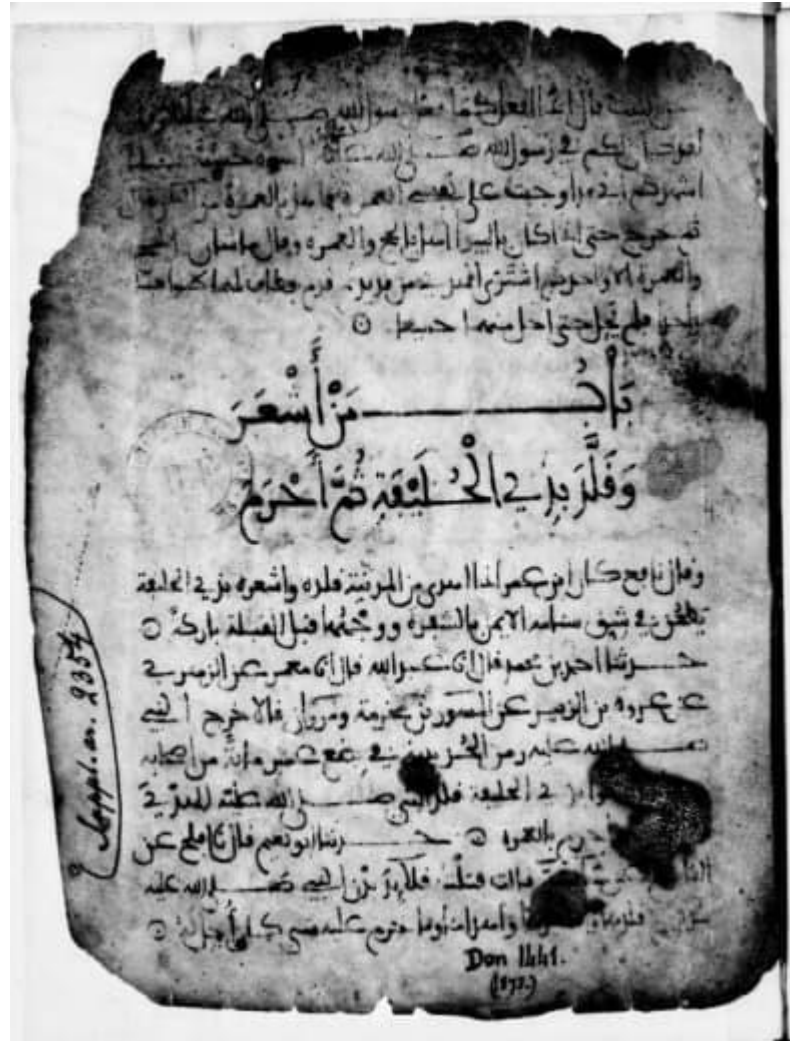 البيت قال اذا افعل كما فعل رسول الله صلى الله عليه
لكم في رسول الله اسوة حسنة
اشهدكم اني قد اوجبت على نفسي العمرة فاهل بالعمرة من الدار قال
ثم خرج حتى اذا كان بالبيدا اهل بالحج والعمرة وقال ما شان الحج
والعمرة الا واحد ثم اشترى الهدي من قديد ثم قدم فطاف لهما طوافا
واحدا فلم يحل حتى احل منهما جميعا
بَابُ مَنْ أَشْعَرَ
وَقَلَّدَ بِذِي الْحُلَيْفَةِ ثُمَّ أَحْرَمَ
وقال نافع كان ابن عمر اذا اهدى من المدينة قلده واشعره بذي الحليفة
يطعن في شق سنامه الايمن بالشفرة ووجهها قبل القبلة باركة
حدثنا احمد بن محمد قال انا عبد الله قال انا معمر عن الزهري
عن عروة بن الزبير عن المسور بن مخرمة ومروان قالا خرج النبي
الله عليه زمن الحديبية في بضع عشرة مائة من اصحابه
بذي الحليفة قلد النبي صلى الله عليه الهدي
واحرم بالعمرة حدثنا ابو نعيم قال نا افلح عن
قالت فتلت قلائد بدن النبي صلى الله عليه
واهداها وما حرم عليه شي كان احل له
Suppl. ar. 2354
Don 1441.